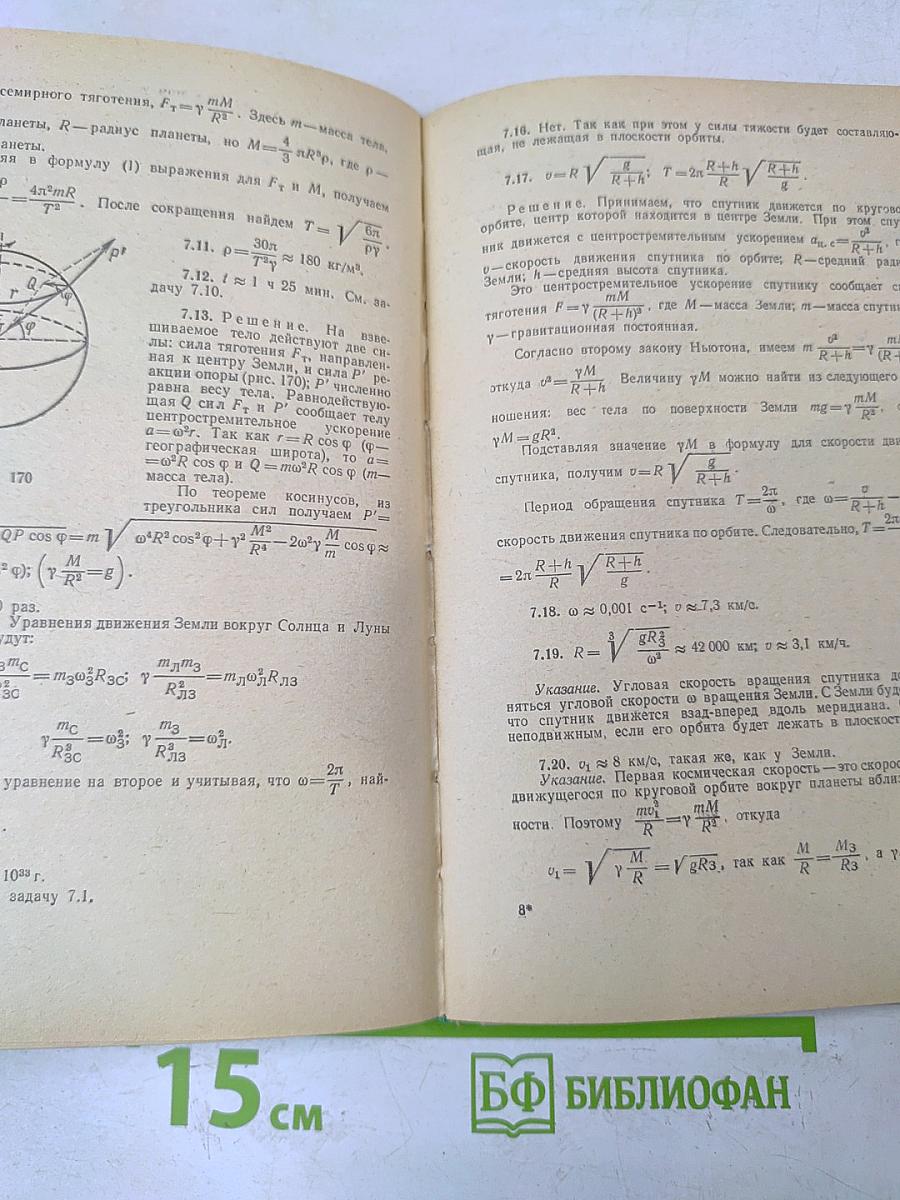 семирного тяготения, Fт=γ mM/R². Здесь m—масса тела,
ланеты, R—радиус планеты, но M=4/3 πR³ρ, где ρ—
анеты.
яя в формулу (1) выражения для Fт и M, получаем
=4π²mR/T². После сокращения найдем T=√(6π/ργ).
7.11. ρ=30π/T²γ≈180 кг/м³.
7.12. t≈1 ч 25 мин. См. за-
дачу 7.10.
7.13. Решение. На взве-
шиваемое тело действуют две си-
лы: сила тяготения Fт, направлен-
ная к центру Земли, и сила P′ ре-
акции опоры (рис. 170); P′ численно
равна весу тела. Равнодействую-
щая Q сил Fт и P′ сообщает телу
центростремительное ускорение
a=ω²r. Так как r=R cos φ (φ—
географическая широта), то a=
=ω²R cos φ и Q=mω²R cos φ (m—
масса тела).
По теореме косинусов, из
треугольника сил получаем P′=
P′
Q
φ
r
φ
170
QP cos φ=m√(ω⁴R² cos² φ+γ² M²/R⁴—2ω²γ M/m cos φ≈
² φ); (γ M/R²=g).
0 раз.
Уравнения движения Земли вокруг Солнца и Луны
удут:
=mЗω²ЗRЗС; γ mЛmЗ/R²ЛЗ=mЛω²ЛRЛЗ
γ mС/R³ЗС=ω²З; γ mЗ/R³ЛЗ=ω²Л.
уравнение на второе и учитывая, что ω=2π/T, най-
10³³ г.
задачу 7.1.
7.16. Нет. Так как при этом у силы тяжести будет составляю-
щая, не лежащая в плоскости орбиты.
7.17. v=R√(g/(R+h)); T=2π (R+h)/R √((R+h)/g).
Решение. Принимаем, что спутник движется по кругово
орбите, центр которой находится в центре Земли. При этом спу
ник движется с центростремительным ускорением aц.с=v²/(R+h),
v—скорость движения спутника по орбите; R—средний ради
Земли; h—средняя высота спутника.
Это центростремительное ускорение спутнику сообщает с
тяготения F=γ mM/(R+h)², где M—масса Земли; m—масса спутни
γ—гравитационная постоянная.
Согласно второму закону Ньютона, имеем m v²/(R+h)=γ m/(R+
откуда v²=γM/(R+h) Величину γM можно найти из следующего
ношения: вес тела по поверхности Земли mg=γ mM/R²,
γM=gR².
Подставляя значение γM в формулу для скорости дви
спутника, получим v=R√(g/(R+h)).
Период обращения спутника T=2π/ω, где ω=v/(R+h)—
скорость движения спутника по орбите. Следовательно, T=2π
=2π (R+h)/R √((R+h)/g).
7.18. ω≈0,001 с⁻¹; v≈7,3 км/с.
7.19. R=∛(gR²З/ω²)≈42 000 км; v≈3,1 км/ч.
Указание. Угловая скорость вращения спутника до
няться угловой скорости ω вращения Земли. С Земли буд
что спутник движется взад-вперед вдоль меридиана.
неподвижным, если его орбита будет лежать в плоскост
7.20. v₁≈8 км/с, такая же, как у Земли.
Указание. Первая космическая скорость—это скорос
движущегося по круговой орбите вокруг планеты вблиз
ности. Поэтому mv₁²/R=γ mM/R², откуда
v₁=√(γ M/R)=√(gRЗ), так как M/R=MЗ/RЗ, а γ
8*
15 см
БФ БИБЛИОФАН